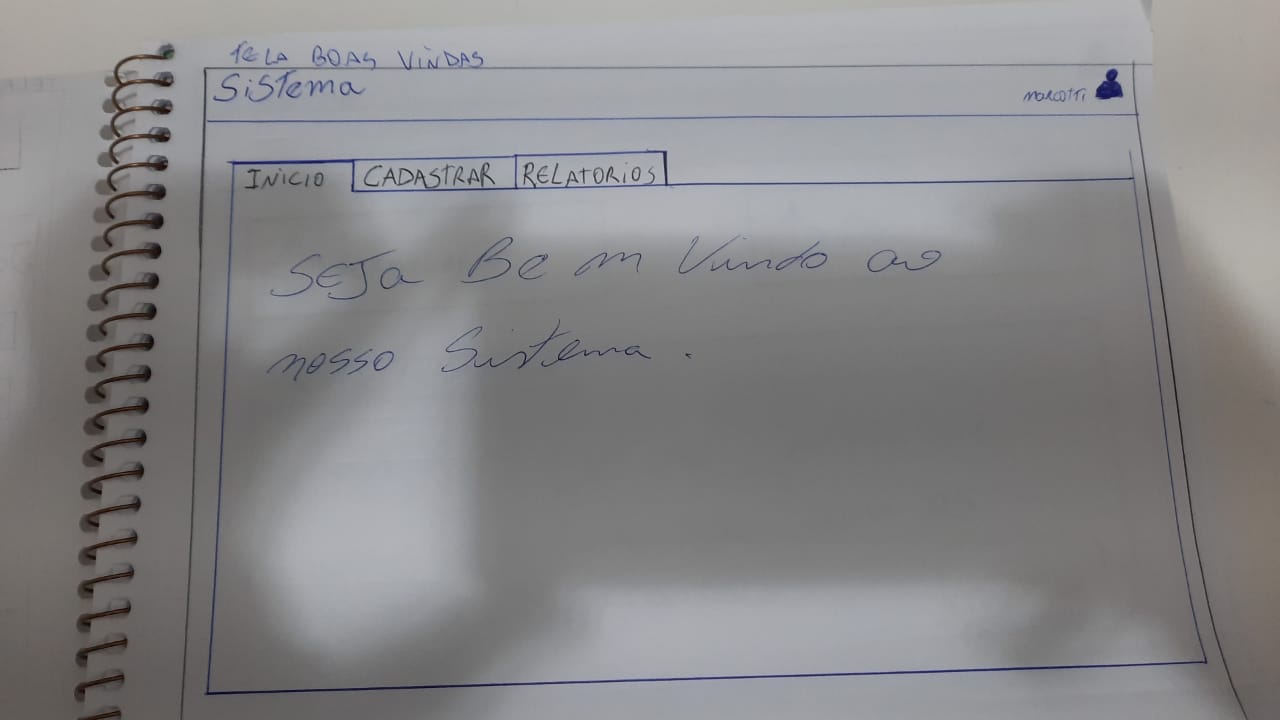 TELA BOAS VINDAS
Sistema
marcotti
INICIO
CADASTRAR
RELATORIOS
SEJa Bem Vindo ao
nosso Sistema.